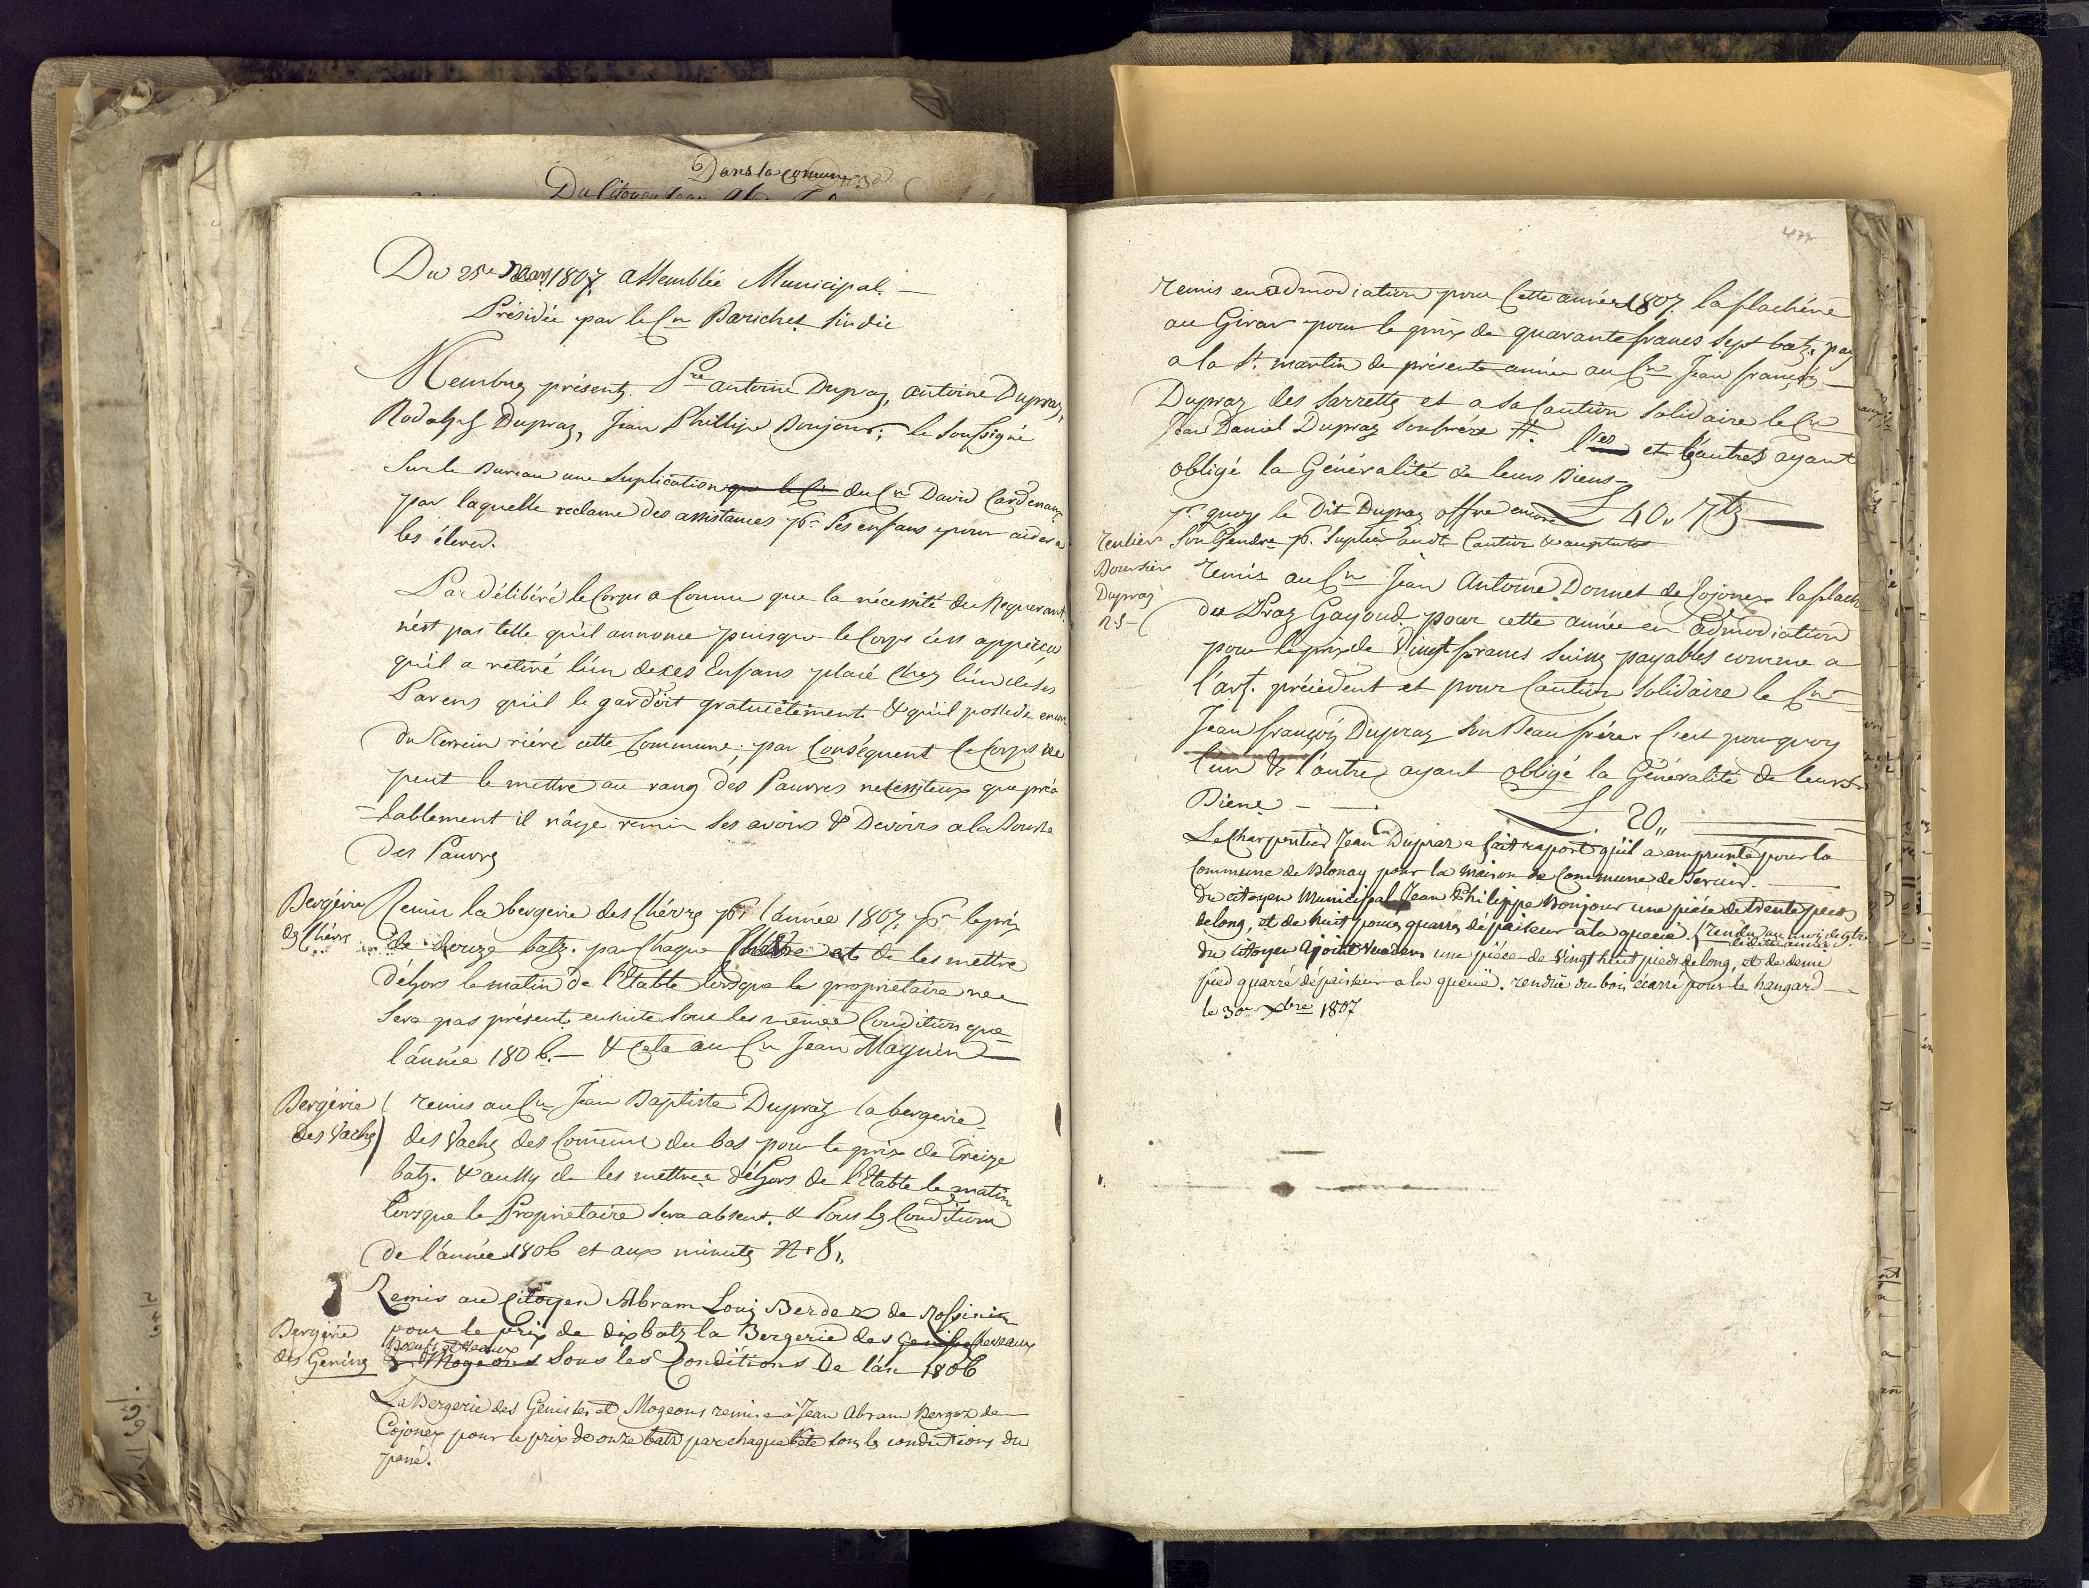 Dans la Commune
Du Citoyen Jean
Du 25e Mars 1807. assemblée Municipal. —
Présidée par le Cn Barichet Sindic
Membres présents. Pre antoine Dupraz, antoine Dupraz,
Rodolph Dupraz, Jean Phillipe Bonjour; le soussigné
Sur le Bureau une Suplication que le Cn du Cn David Cardenaux
par laquelle reclame des assistances pr. ses enfans pour aider a
les élever.
Par délibéré le Corps a Connu que la nécessité du Requerant
n'est pas telle qu'il annonce puisque le Corps s'est apperçu
qu'il a retiré l'un de ces Enfans placé Chez l'un de ses
Parens qu'il le gardoit gratuitement & qu'il possede encore
du terrein riére cette Commune; par Conséquent le Corps ne
peut le mettre au rang des Pauvres necessiteux que préa
=lablement il n'aye remis ses avoirs & Devoirs a la Bourse
des Pauvres
Bergérie
des Chévres
Remis la bergerie des Chévres pr. l'année 1807. pr. le prix
de douze batz. par Chaque Chévre et de les mettre
déhors le matin de l'Etable lorsque le propriétaire ne
sera pas présent. ensuite sous les mêmes Condition que
l'année 1806. — & Cela au Cn Jean Magnin —
Bergérie
des Vaches
remis au Cn Jean Baptiste Dupraz la bergerie
des Vaches des Commune du bas pour le prix de Treize
batz. & aussy de les mettre déhors de l'Etable le matin
lorsque le Propriétaire sera absent. & sous les Condition
de l'année 1806 et aux minutes No 8.
Bergérie
des Genisses
Remis au Citoyen Abram Louis Berdez de Rossinière
pour le prix de dix batz la Bergerie des Genisses chevaux
Boeufs et Veaux
& Mogeons sous les Conditions de l'an 1806
La Bergerie des Genisses et Mogeons remise à Jean Abram Bergoz de
Cojonex pour le prix de onze batz par chaque bête sous les conditions du
passé.
477
remis en admodiation pour Cette année 1807. la flachére
au Girav pour le prix de quarante francs Sept batz. pay
a la St. martin de présente année au Cn Jean françois
Dupraz des sarrettes et a sa Caution Solidaire le Cn
Jean Daniel Dupraz son frére #. l'un et l'autres ayant
obligé la Généralité de leurs Biens —
L 40. 7 bz —
pr. quoy le Dit Dupraz offre encore
son Gendre pr. Caution
rentier
Boursier
Dupraz
remis au Cn Jean Antoine Donnet de Cojonex la flach
du Praz Gayoud pour cette année en admodiation
pour le prix de Vingt francs Suisse payables comme a
l'art. précédent et pour Caution Solidaire le Cn
Jean françois Dupraz son Beau frére. C'est pourquoy
l'un & l'autre, ayant obligé la Généralité de leurs
Biens — — . L 20,,
Le Charpentier Jean Dupraz a fait raport qu'il a emprunté pour la
Commune de Blonay pour la maison de Commune de Tercier. —
du citoyen Municipal Jean Philippe Bonjour une piéce de trente pieds
de long, et de huit pouces quarré, dépaisseur à la queuë. (rendu au mois de 9bre
de dite année
du citoyen Ajoint une piéce de vingt huit pieds de long, et de demi
pied quarré dépaisseur a la queuë. rendüe du bois écarri pour le hangard —
le 30e Xbre 1807